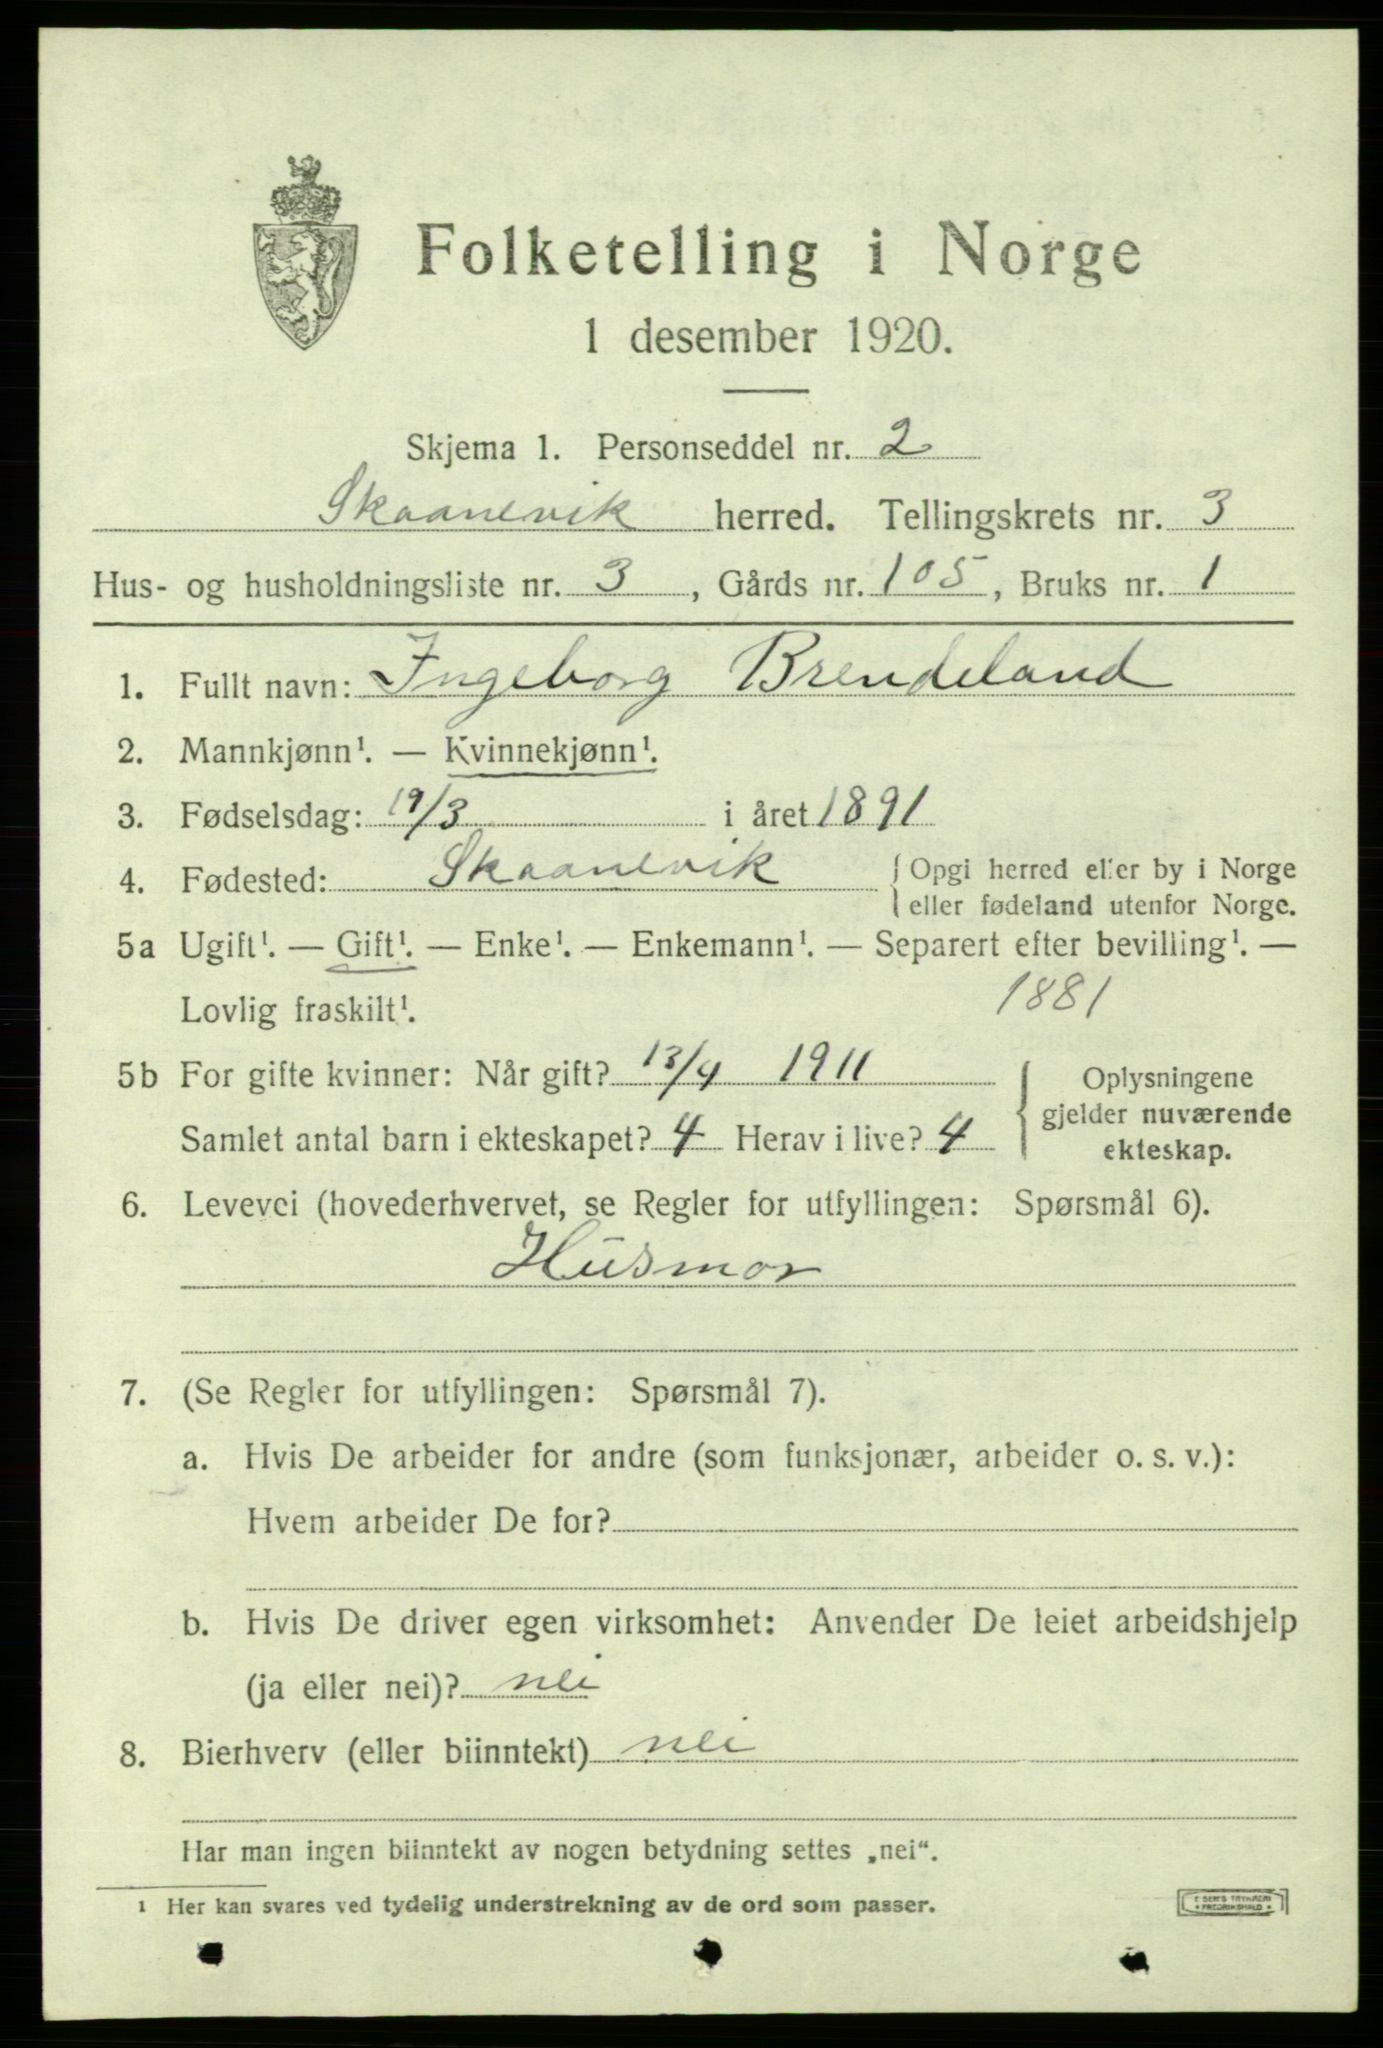 Folketelling i Norge
1 desember 1920.
Skjema 1. Personseddel nr. 2
Skaanevik herred. Tellingskrets nr. 3
Hus- og husholdningsliste nr. 3, Gårds nr. 105, Bruks nr. 1
1. Fullt navn: Ingeborg Brendeland
2. Mannkjønn¹. — Kvinnekjønn¹.
3. Fødselsdag: 19/3 i året 1891
4. Fødested: Skaanevik { Opgi herred eller by i Norge
eller fødeland utenfor Norge.
5a Ugift¹. — Gift¹. — Enke¹. — Enkemann¹. — Separert efter bevilling¹. —
Lovlig fraskilt¹. 1881
5b For gifte kvinner: Når gift? 13/4 1911
Samlet antal barn i ekteskapet? 4 Herav i live? 4
Oplysningene
gjelder nuværende
ekteskap.
6. Levevei (hovederhvervet, se Regler for utfyllingen: Spørsmål 6).
Husmor
7. (Se Regler for utfyllingen: Spørsmål 7).
a. Hvis De arbeider for andre (som funksjonær, arbeider o. s. v.):
Hvem arbeider De for?
b. Hvis De driver egen virksomhet: Anvender De leiet arbeidshjelp
(ja eller nei)? nei
8. Bierhverv (eller biinntekt) nei
Har man ingen biinntekt av nogen betydning settes „nei“.
1 Her kan svares ved tydelig understrekning av de ord som passer.